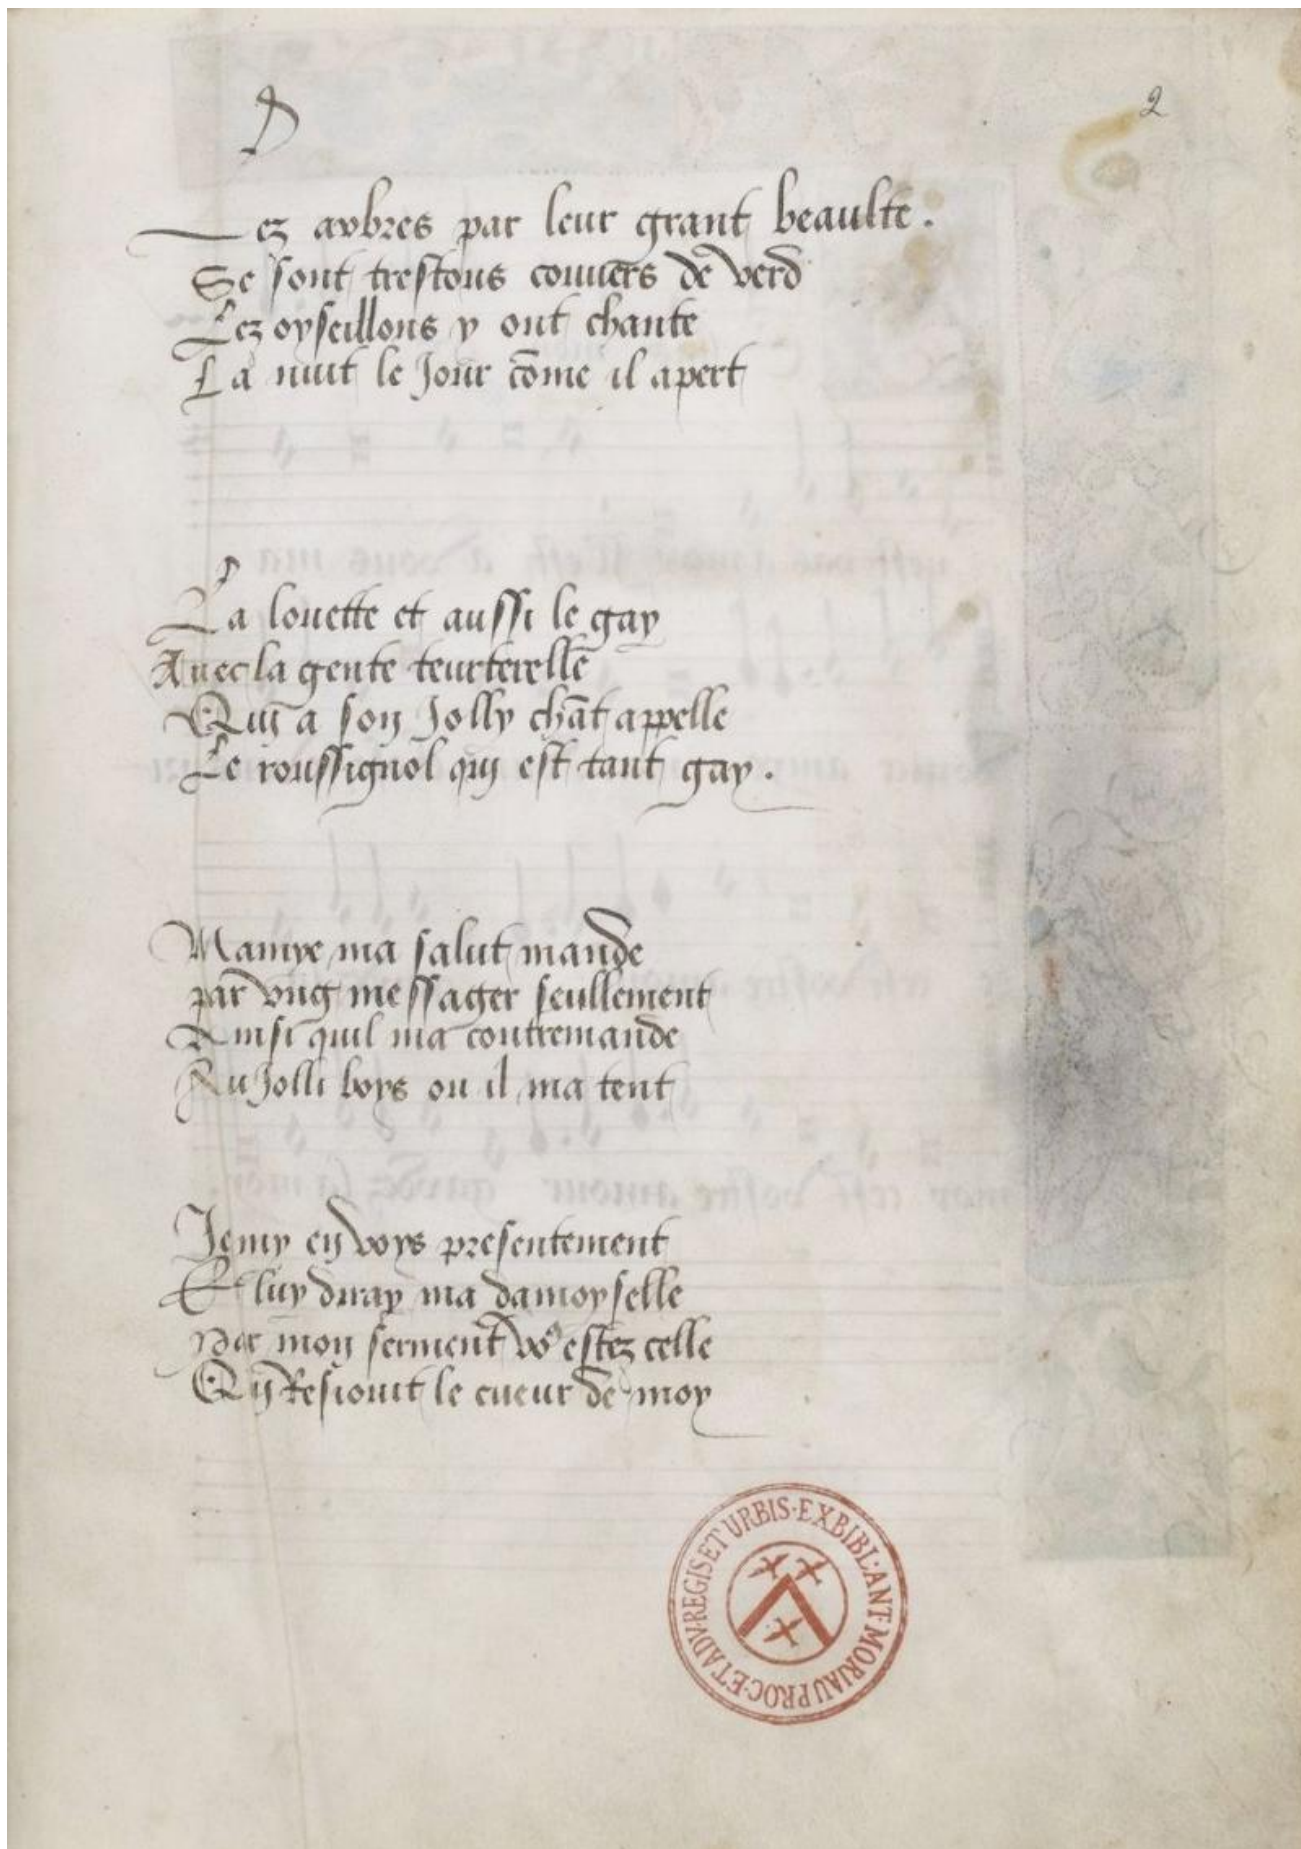 D
2
Lez arbres par leur grant beaulte.
Se sont trestous couuers de verd
Lez oyseillons y ont chante
La nuit le Jour cõme il apert
La louette et aussi le gay
Auec la gente teurterelle
Qui a son Jolly chãt appelle
Le roussignol qui est tant gay.
Mamye ma salut mande
par vng messager seullement
Ainsi quil ma contremande
Au Jolli boys ou il ma tent
Jemy en voys presentement
Et luy diray ma damoyselle
Par mon serment vo9 estez celle
Qui Resiouit le cueur de moy
EX BIBL·ANT·MORIAU PROC·ET ADV·REGIS ET URBIS·